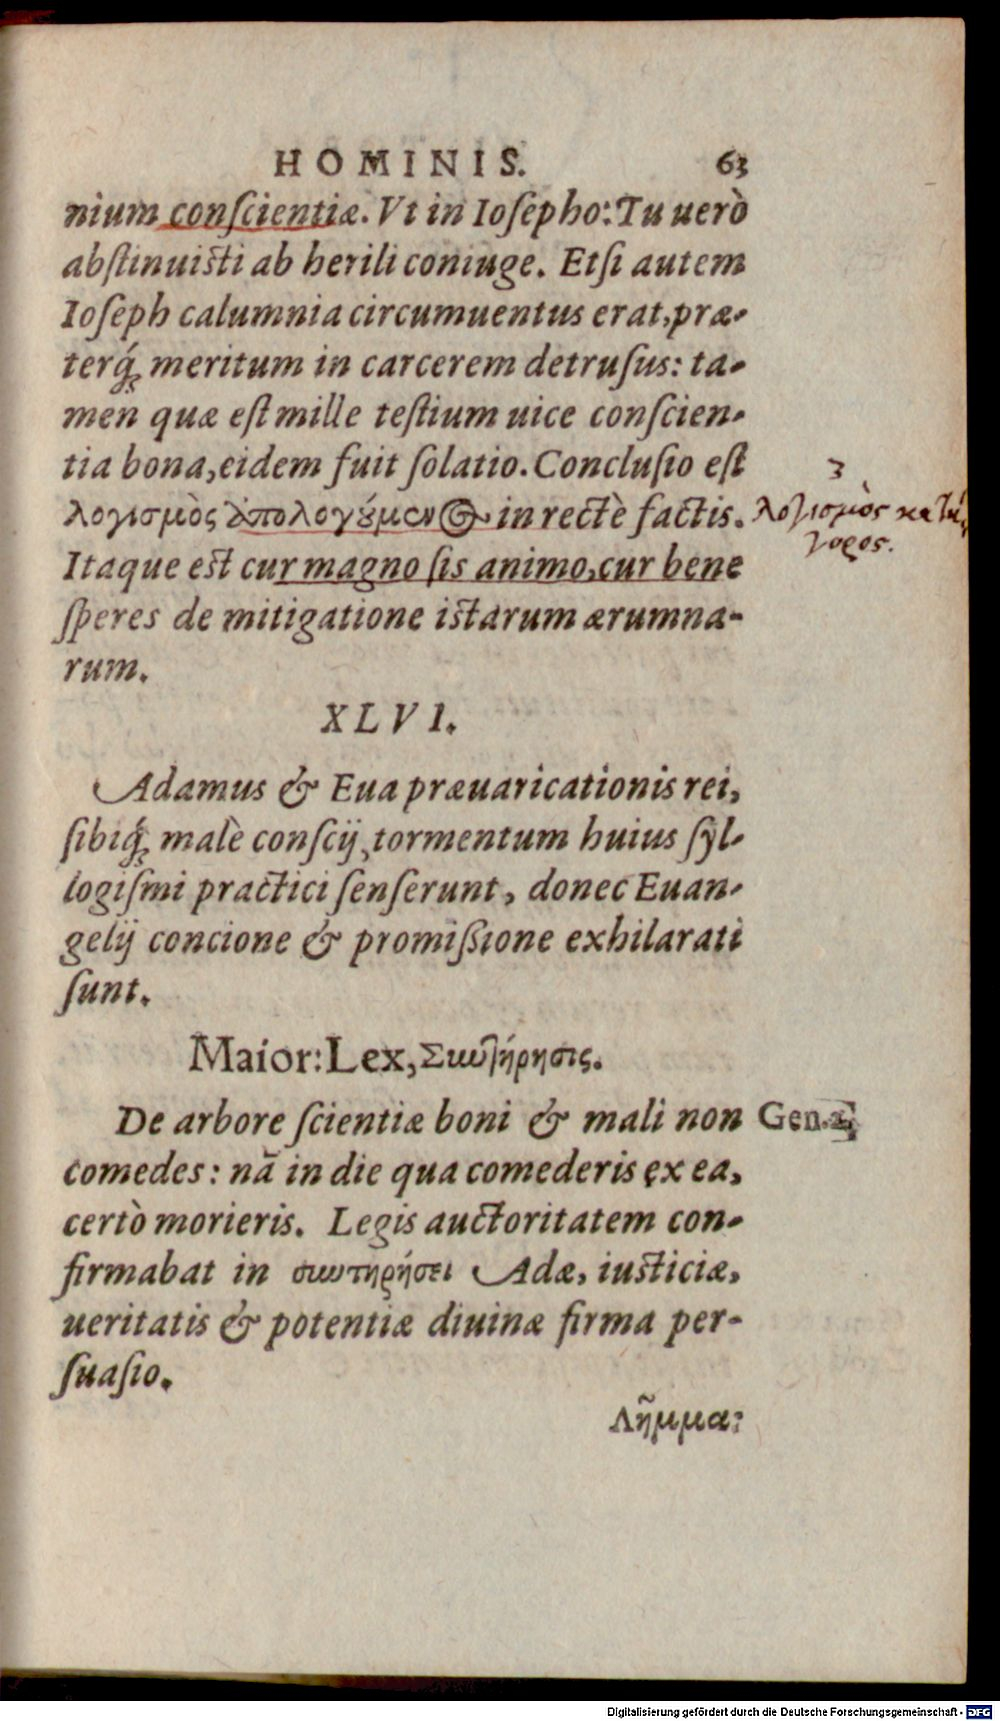 HOMINIS. 63
nium conſcientiæ. Vt in Ioſepho: Tu uerò
abſtinuiſti ab herili coniuge. Etſi autem
Ioſeph calumnia circumuentus erat, præ-
terq́ꝫ meritum in carcerem detruſus: ta-
men quæ eſt mille teſtium uice conſcien-
tia bona, eidem fuit ſolatio. Concluſio eſt
λογισμὸς ἀπολογούμενος in rectè factis.
3
λογισμὸς κατή-
γορος.
Itaque est cur magno ſis animo, cur bene
ſperes de mitigatione iſtarum ærumna-
rum.
XLVI.
Adamus & Eua præuaricationis rei,
ſibiq́ꝫ malè conſcij, tormentum huius ſyl-
logiſmi practici ſenſerunt, donec Euan-
gelij concione & promiſsione exhilarati
ſunt.
Maior: Lex, Συντήρησις.
De arbore ſcientiæ boni & mali non
Gen. 2.
comedes: nā in die qua comederis ex ea,
certò morieris. Legis auctoritatem con-
firmabat in συντηρήσει Adæ, iuſticiæ,
ueritatis & potentiæ diuinæ firma per-
ſuaſio.
Λῆμμα:
Digitalisierung gefördert durch die Deutsche Forschungsgemeinschaft - DFG